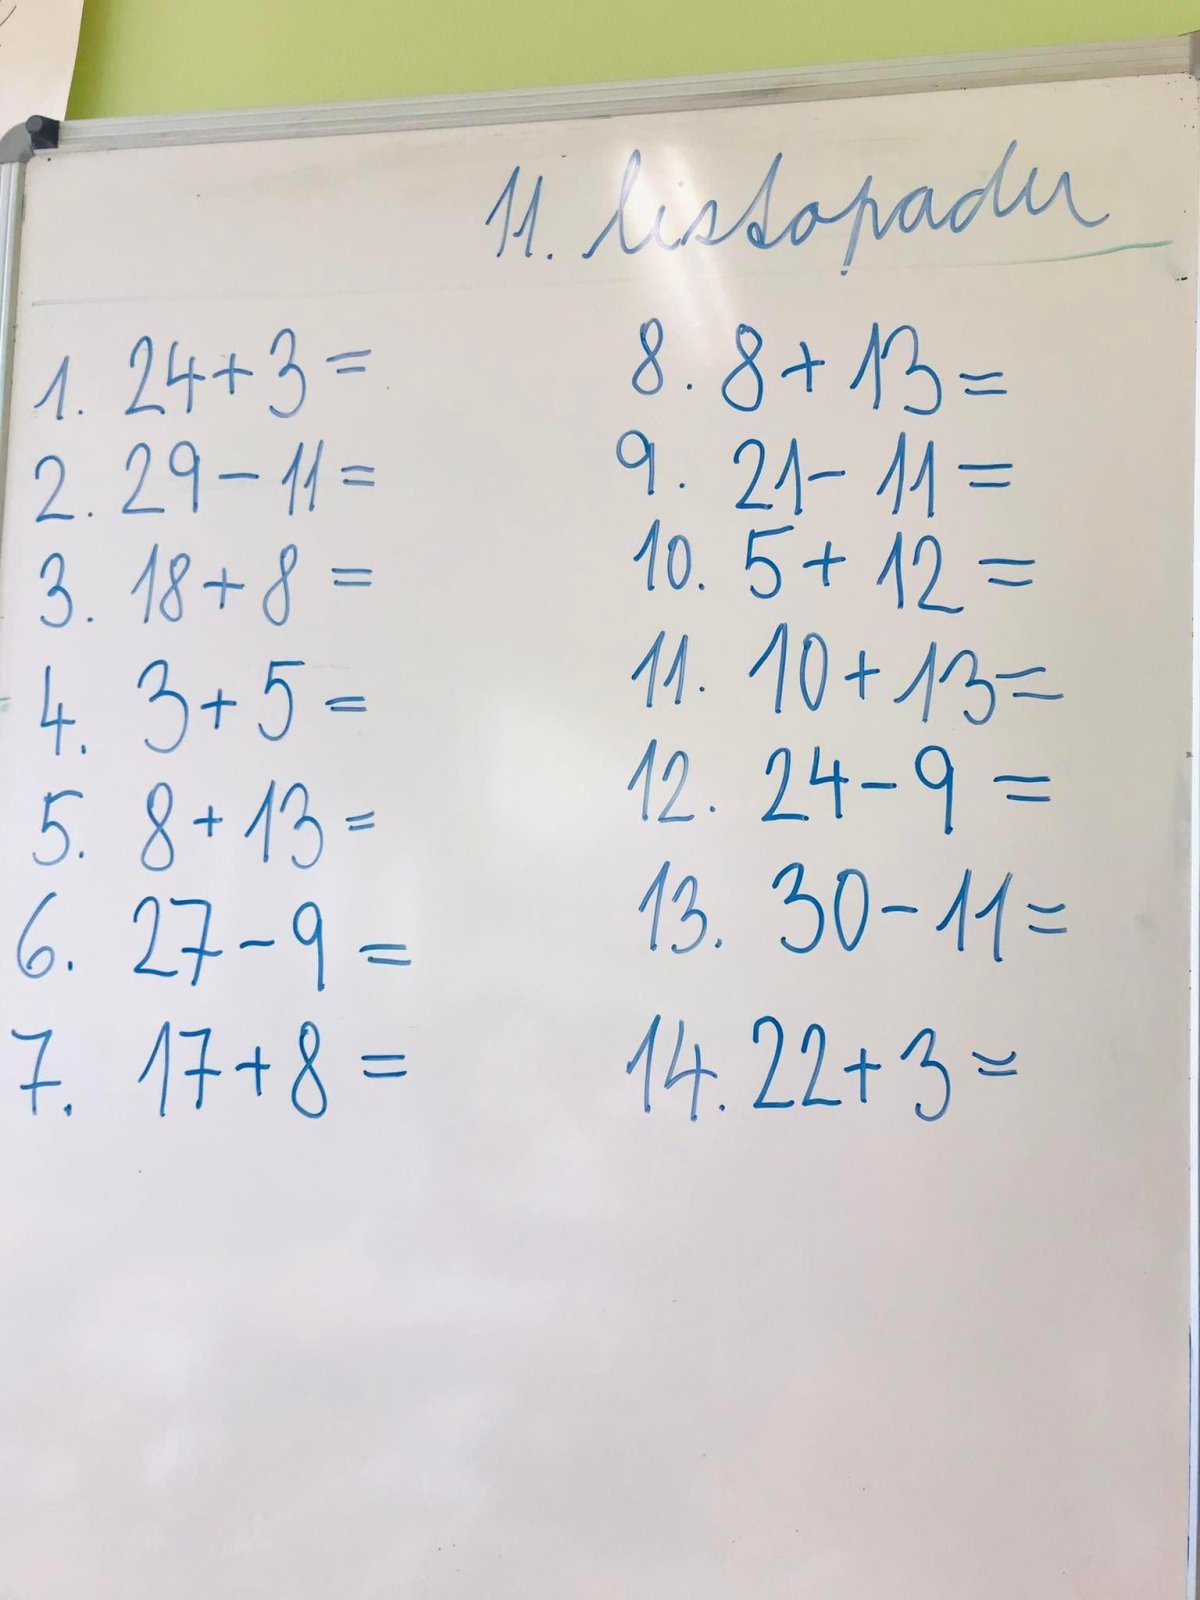 11. listopadu
1. 24+3=
2. 29-11=
3. 18+8=
4. 3+5=
5. 8+13=
6. 27-9=
7. 17+8=
8. 8+13=
9. 21-11=
10. 5+12=
11. 10+13=
12. 24-9=
13. 30-11=
14. 22+3=